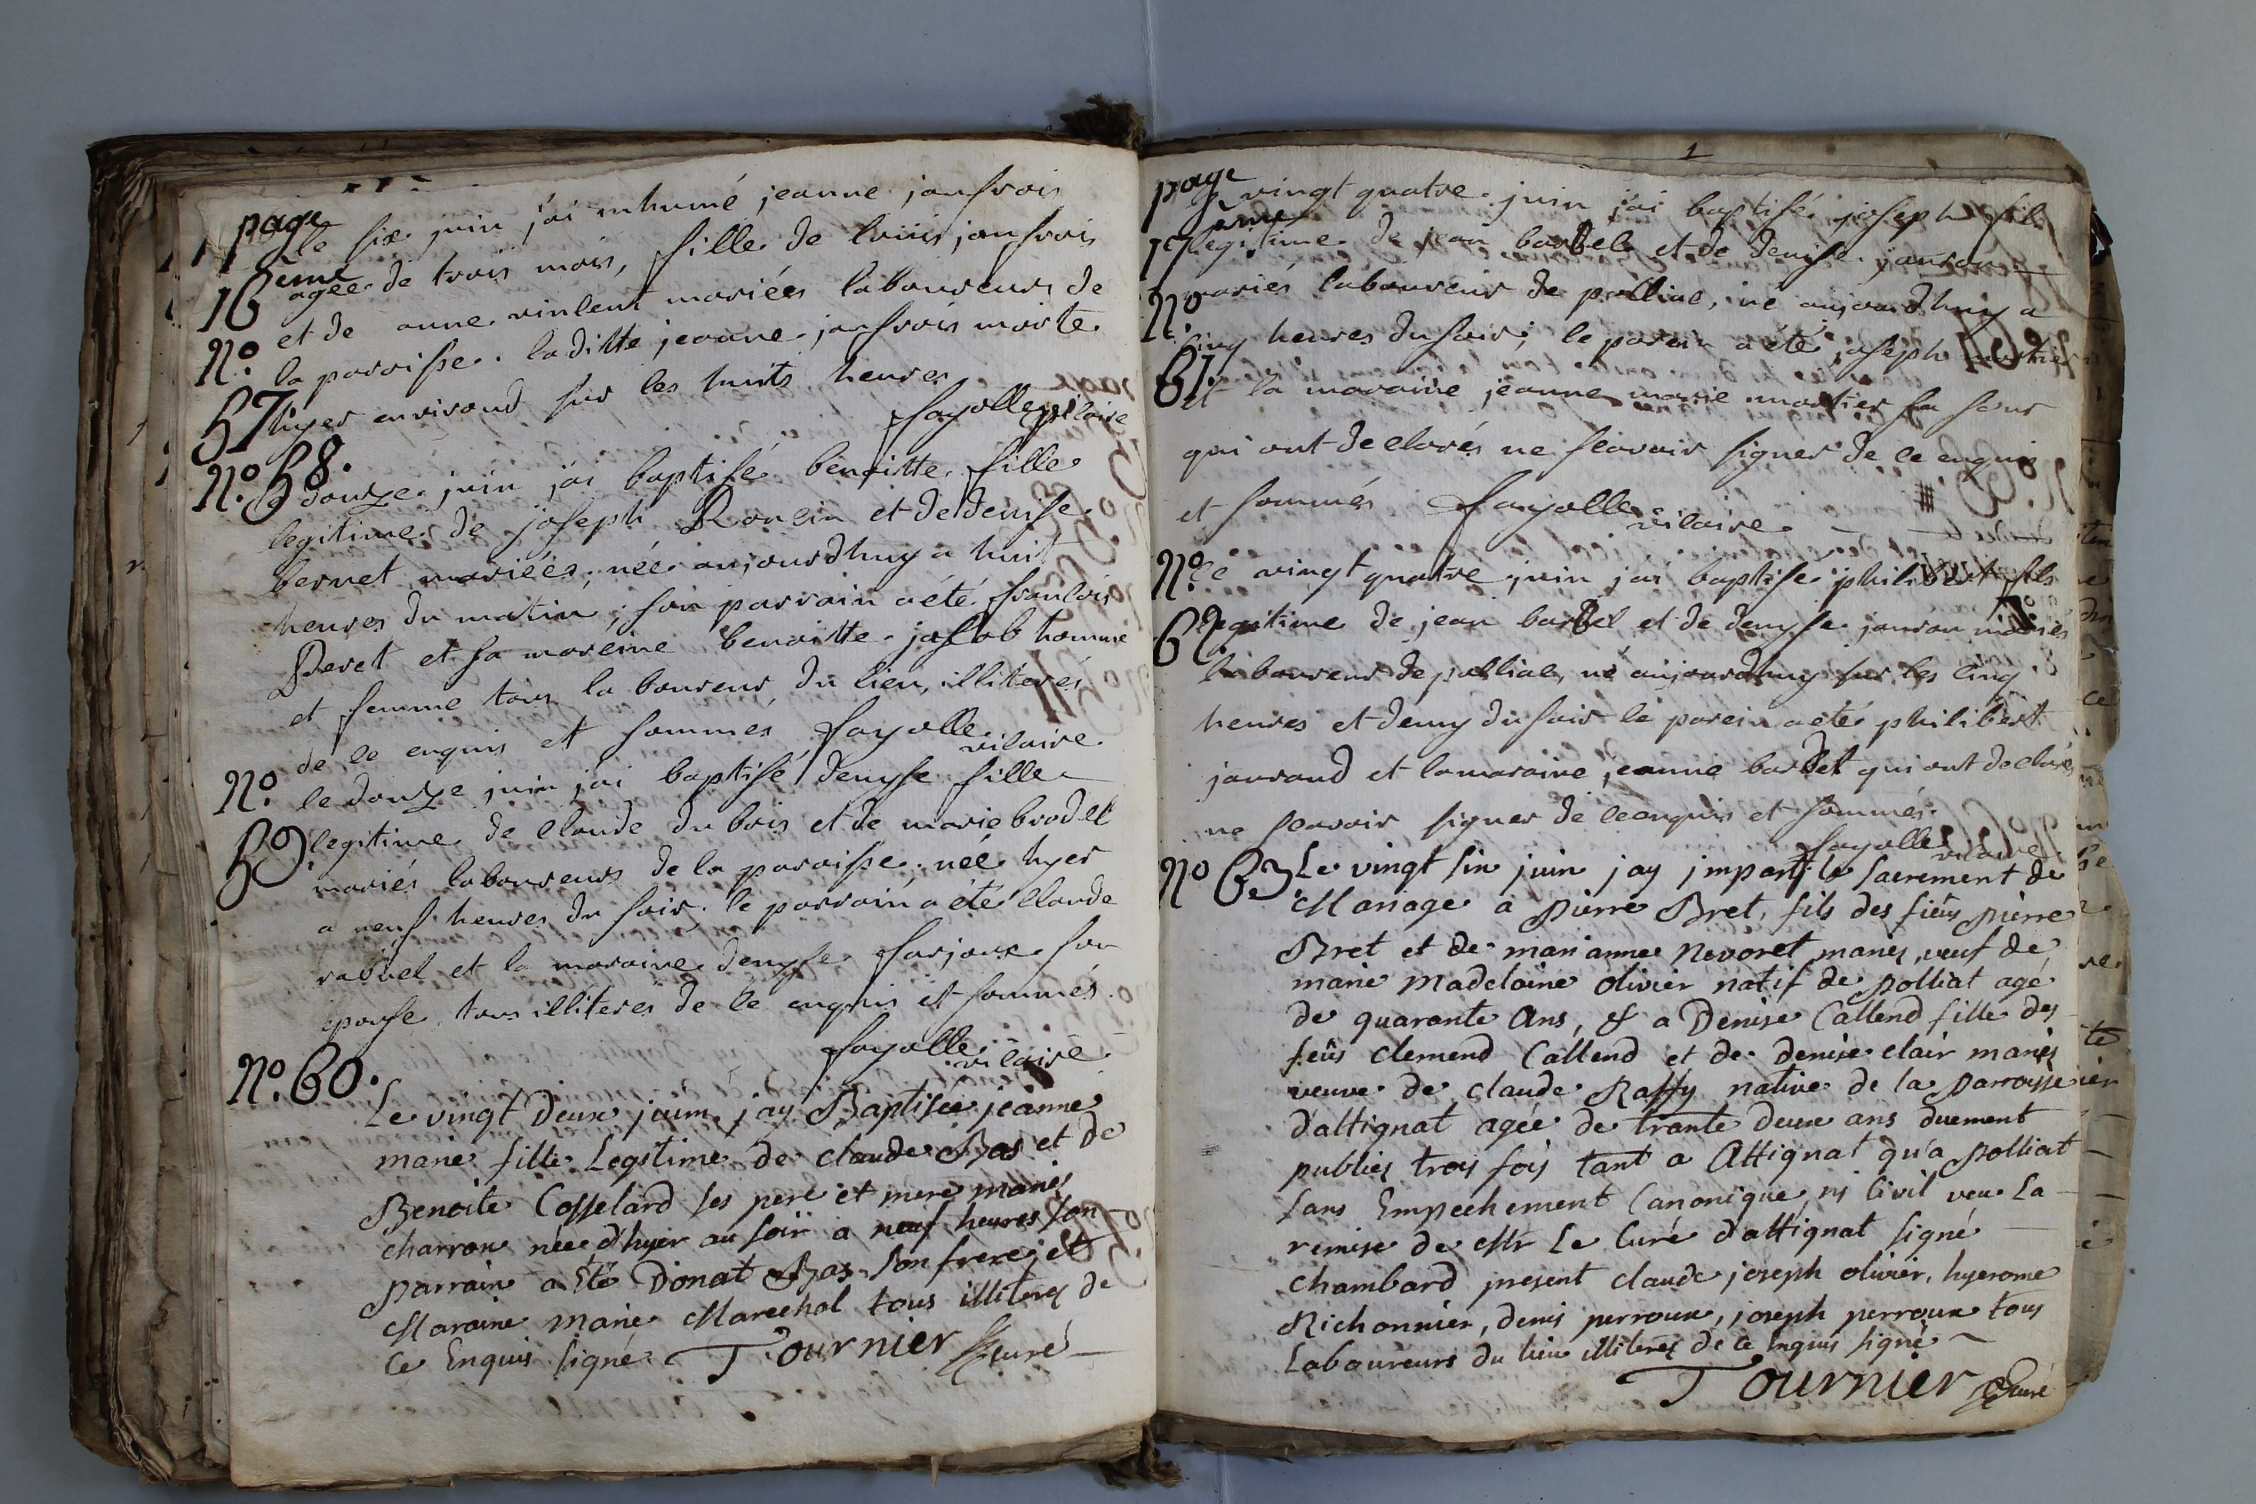 page
16ème
Nº
57
le six juin j'ai inhumé jeanne jonfrois
agée de trois mois, fille de louis jonfrois
et de anne vinlent mariées laboureurs de
la paroisse. laditte jeanne jonfrois morte
hyer environd sur les huits heures
fayolle vicaire
Nº 58.
le douze juin j'ai baptisé benoitte fille
legitime de joseph Roncin et de denise
bernet mariées, née aujourdhuy a huit
heures du matin; son parrain a été francois
Peret et sa mareine benoitte josl​ob homme
et femme tous laboureur du lieu, illiterés
de ce enquis et sommés fayolle
vicaire
Nº
59.
le douze juin j'ai baptisé denyse fille
legitime de claude du bois et de marie brodet
mariés laboureurs de la paroisse, née hyer
a neuf heures du soir. le parrain a été claude
rabuel et la maraine denyse farjoux son
epouse tous illiteres de ce enquis et sommés.
fayolle
vicaire
Nº. 60.
Le vingt deux juin jay Baptisée jeanne
marie fille Legitime de claude Bas et de
Benoite Cosselard ses pere et mere mariés
charron née d'hyer au soir a neuf heures son
parrain a été Donat Bas son frere, et
Maraine marie Marechal tous illiterés de
ce Enquis signé Tournier Curé
1
page
17ème
Nº
61.
vingt quatre juin j'ai baptisé joseph fils
legitime de jean barbet et de denise janran
mariés laboureur de polliac, né aujourdhuy a
cinq heures du soir; le parein a été joseph mortier
et la maraine jeanne marie mortier sa seur
qui ont declarés ne scavoir signer de ce enquis
et sommés fayolle vicaire.
Nº
62.
le vingt quatre juin j'ai baptisé philibert fils
legitime de jean barbet et de denyse janran mariés
laboureur de polliac, né aujourdhuy sur les cinq
heures et demy du soir le parein a été philibert
janrand et la maraine jeanne barbet qui ont declarés
ne scavoir signer de ce enquis et sommés.
fayolle vicaire
Nº 63
Le vingt six juin jay imparti le sacrement de
Mariage a Pierre Bret, fils des feus pierre
Bret et de marianne Nevoret mariés, veuf de
marie madelaine olivier natif de polliat agé
de quarante ans, & a Denise Callend fille des
feus clemend Callend et de denise clair mariés
veuve de claude Raffy native de la parroisse
d'attignat agée de trante deux ans duement
publiés trois fois tant a Attignat qu'a polliat
sans Empechement Canonique, ni Civil veu La
remise de Mr Le Curé d'attignat signé
chambard present claude joseph olivier, hyerome
Michonnier, denis perroux, joseph perroux tous
Laboureurs du lieu illiterés de ce enquis signé
Tournier Curé